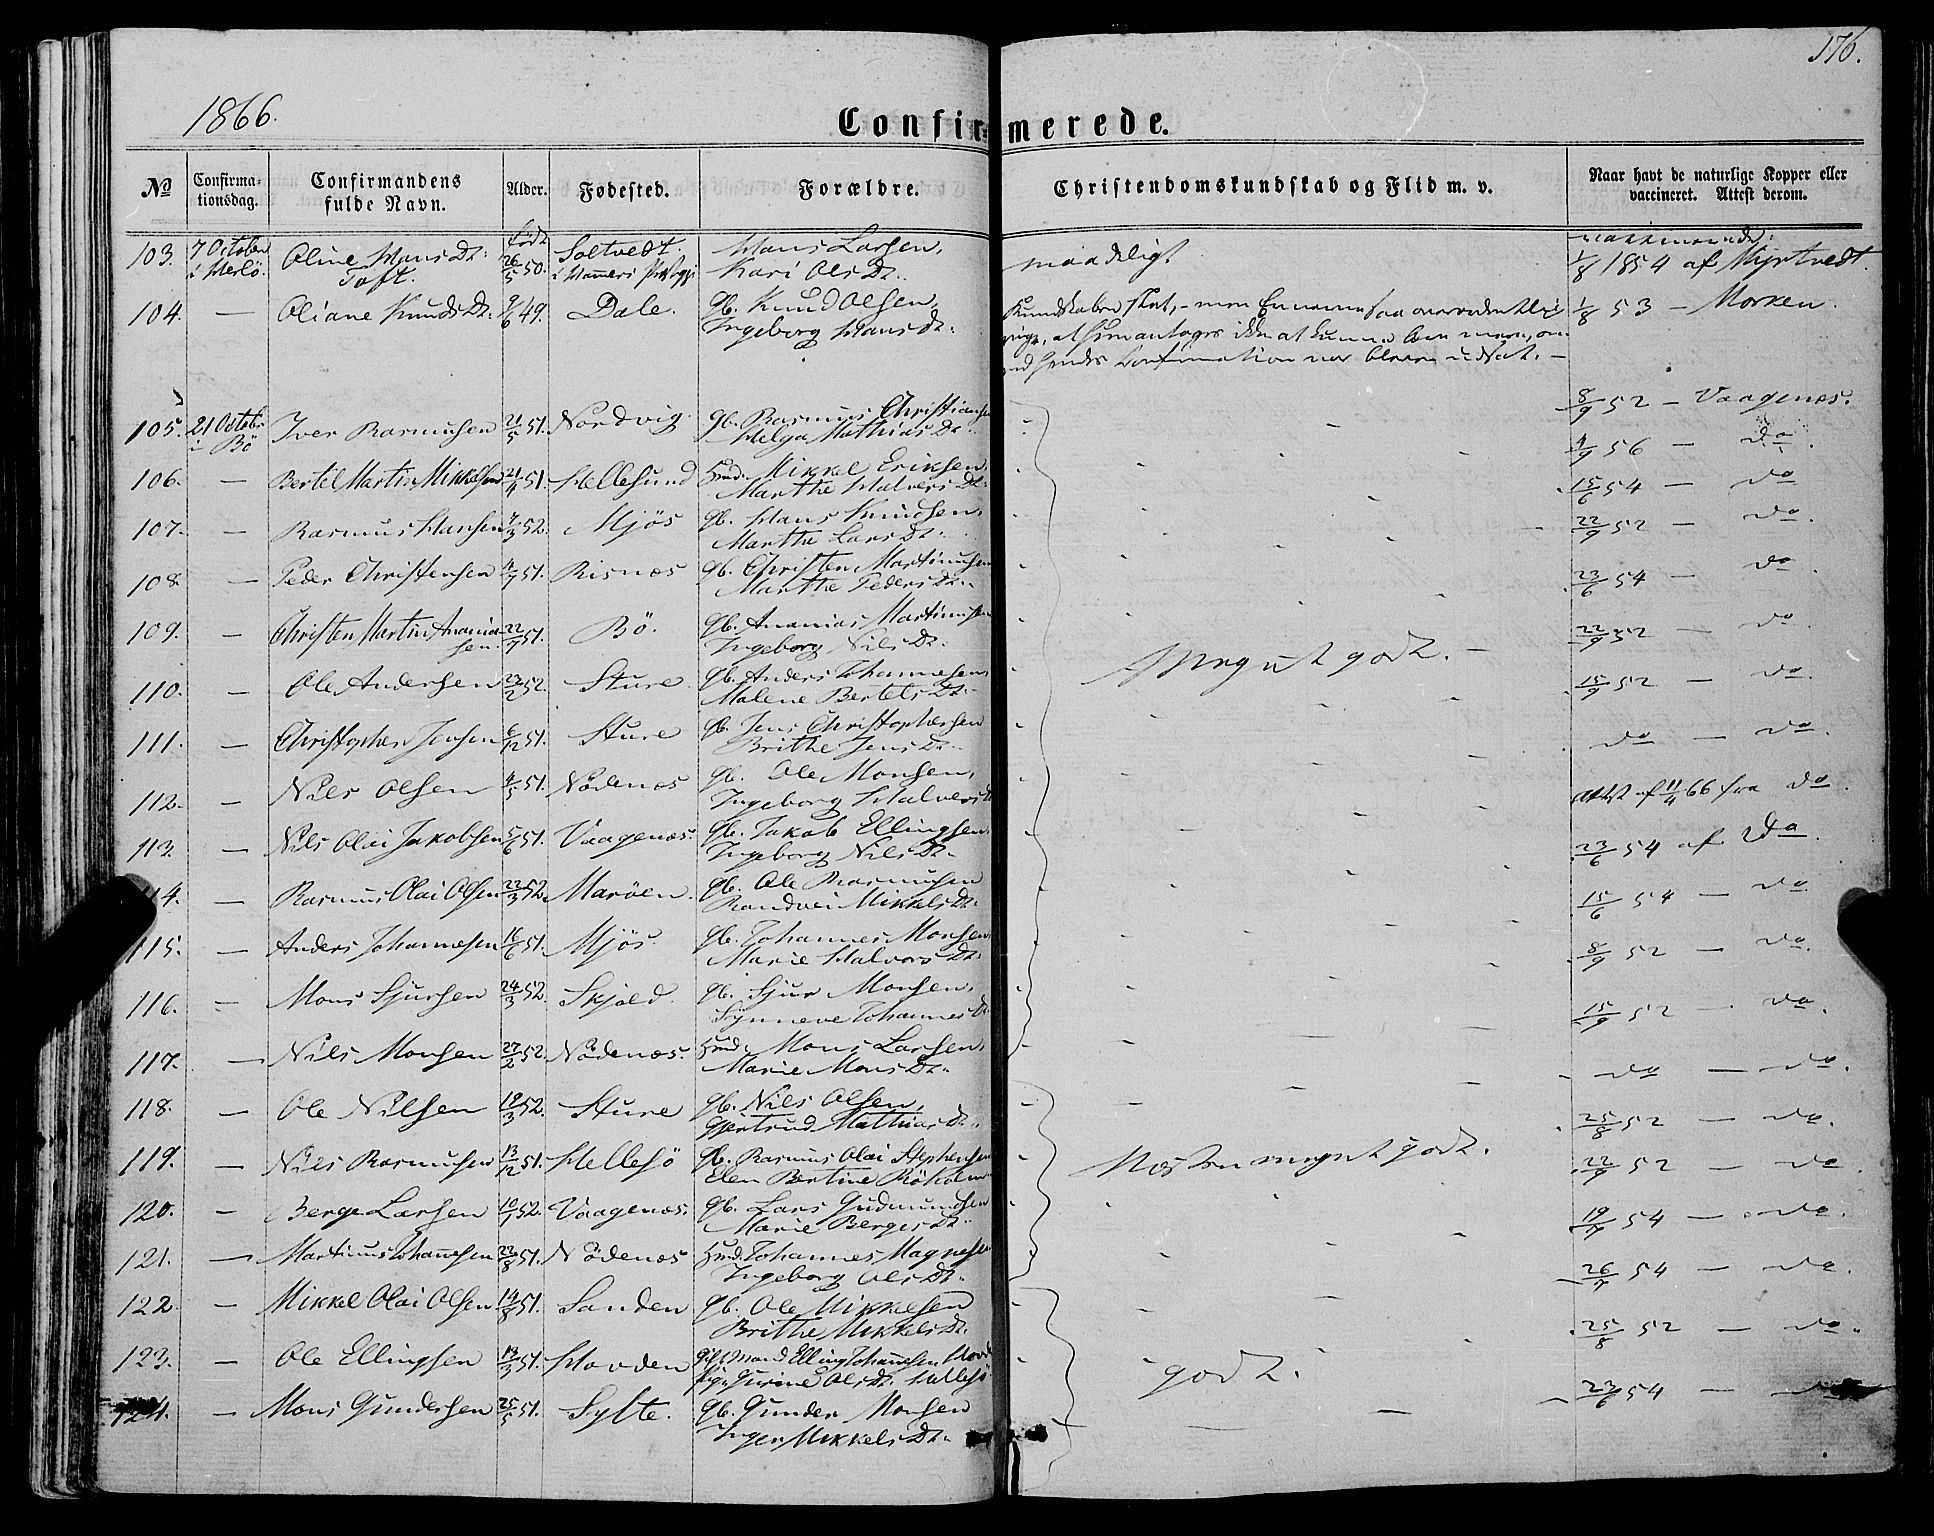 176.
1866.
Confirmerede.
№ Confirmationsdag. Confirmandens fulde Navn. Alder. Fødested. Forældre. Christendomskundskab og Flid m. v. Naar havt de naturlige Kopper eller vaccineret. Attest derom.
103. 7 October i Herlö. Oline Hans Dr. Toft. født 26/5 50. Soltvedt i Hammers Hans Larsen, Kari Ols Dr. maadeligt 1/8 1854 af Myrtvedt.
104. — Oliane Knuds Dr. 9/6 49. Dale. Gb. Knud Olsen, Ingeborg Hans Dr. 1/8 53 — Morken.
105. 21 Octobr i Bö Iver Rasmusen 21/5 51. Nordvig. Gb. Rasmus Christiansen Helga Mathias Dr. 8/9 52 — Vaagenæs.
106. — Bertel Martin Mikkelsen 21/4 51. Hellesund Hmd. Mikkel Eriksen, Marthe Halvers Dr. 4/9 56 — do
107. — Rasmus Hansen 4/3 52. Mjös Gb. Hans Knudsen, Marthe Lars Dr. 15/6 54 — do
108 — Peder Christensen 4/7 51. Risnæs Gb. Christen Martinusen Marthe Peders Dr. 22/9 52 — do
109. — Christen Martin Ananiasen. 22/7 51. Bö. Gb. Ananias Martinusen Ingeborg Nils Dr. 23/6 54 — do
110. — Ole Andersen 23/2 52. Sture Gb. Anders Johannesen, Malene Bertels Dr. Meget godt. — 22/9 52 — do
111. — Christopher Jensen 6/12 51. Sture Gb. Jens Christophersen Brithe Jens Dr. 15/9 52 — do
112. — Nils Olsen 4/5 51. Nödenæs Gb. Ole Monsen, Ingeborg Halvers Dr do — do.
113. — Nils Olai Jakobsen 5/6 51. Vaagenæs. Gb. Jakob Ellingsen, Ingeborg Nils Dr. Attest af 11/4 66 fra do
114. — Rasmus Olai Olsen 22/3 52. Maröen. Gb. Ole Rasmusen Randvei Mikkels Dr. 23/6 54 af do
115. — Anders Johannesen 16/6 51. Mjös. Gb. Johannes Monsen, Marie Halvors Dr. 15/6 54 — do
116. — Mons Sjursen 24/3 52. Skjold. Gb. Sjur Monsen, Synneve Johannes Dr 8/9 52 — do.
117. — Nils Monsen 27/2 52. Nödenæs. Hmd. Mons Larsen, Marie Mons Dr. 15/9 52 — do.
118. — Ole Nilsen 19/3 52. Sture Gb. Nils Olsen, Gjertrud Mathias Dr. do — do.
119. — Nils Rasmusen 13/12 51. Hellesö Gb. Rasmus Olai Stephensen Elen Bertine Rökolm Næsten meget godt. 25/8 52 — do.
120. — Berge Larsen 10/1 52. Vaagenæs. Gb. Lars Gudmundsen Marie Berges Dr. 22/9 52 — do.
121. — Martinus Johannesen 23/8 51. Nödenæs Hmd. Johannes Magnesen Ingeborg Ols Dr. 19/7 54 — do.
122. — Mikkel Olai Olsen 14/8 51. Sanden Gb. Ole Mikkelsen Brithe Mikkels Dr. 26/7 54 — do.
123. — Ole Ellingsen 13/3 51. Hovden Gift Mand Elling Johannesen Hovd Pige Gurine Ols Dr. Hellesö godt. 25/8 52 — do.
124. — Mons Gundersen 25/5 51. Sylte. Gb. Gunder Monsen Inger Mikkels Dr. 23/6 54 — do